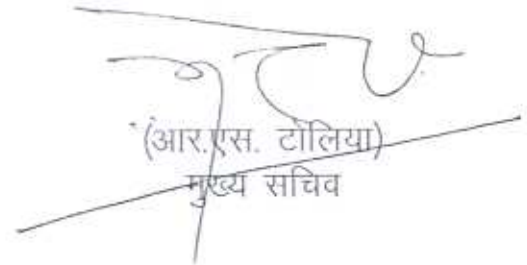 (आर.एस. टोलिया)
मुख्य सचिव